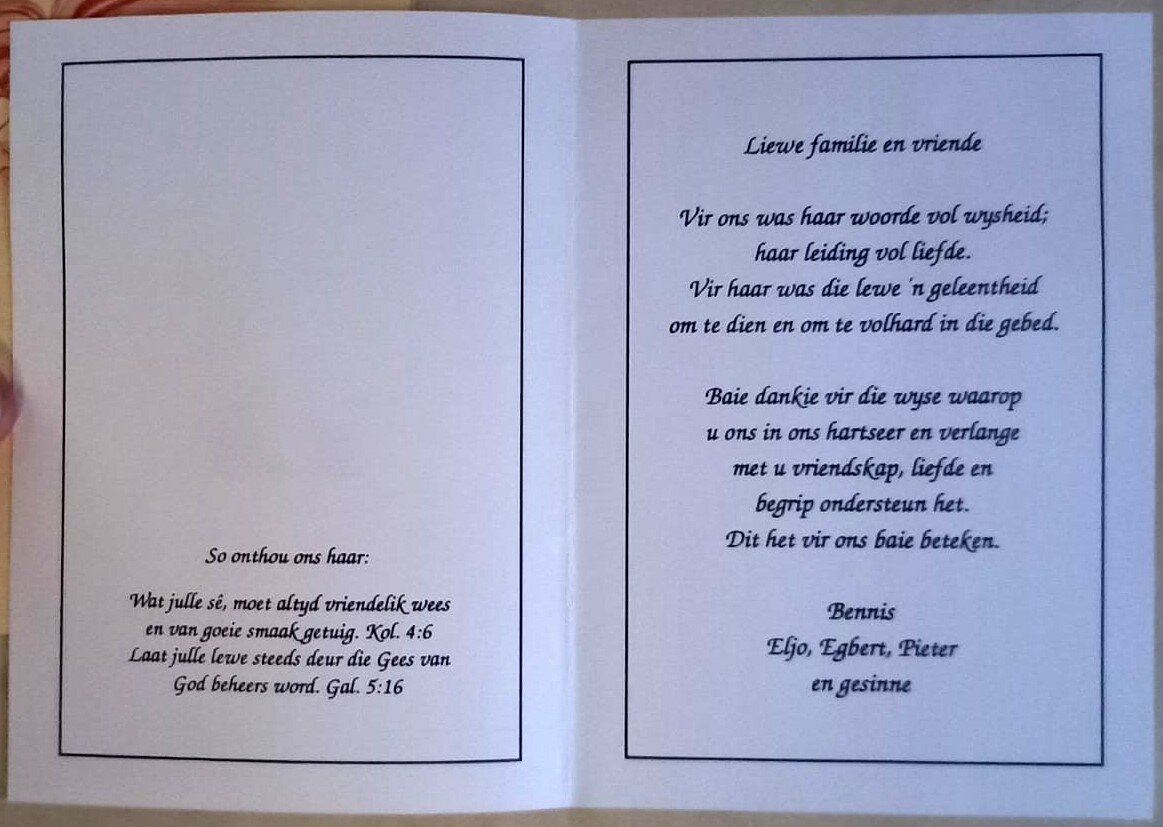 So onthou ons haar:
Wat julle sê, moet altyd vriendelik wees
en van goeie smaak getuig. Kol. 4:6
Laat julle lewe steeds deur die Gees van
God beheers word. Gal. 5:16
Liewe familie en vriende
Vir ons was haar woorde vol wysheid;
haar leiding vol liefde.
Vir haar was die lewe 'n geleentheid
om te dien en om te volhard in die gebed.
Baie dankie vir die wyse waarop
u ons in ons hartseer en verlange
met u vriendskap, liefde en
begrip ondersteun het.
Dit het vir ons baie beteken.
Bennis
Eljo, Egbert, Pieter
en gesinne